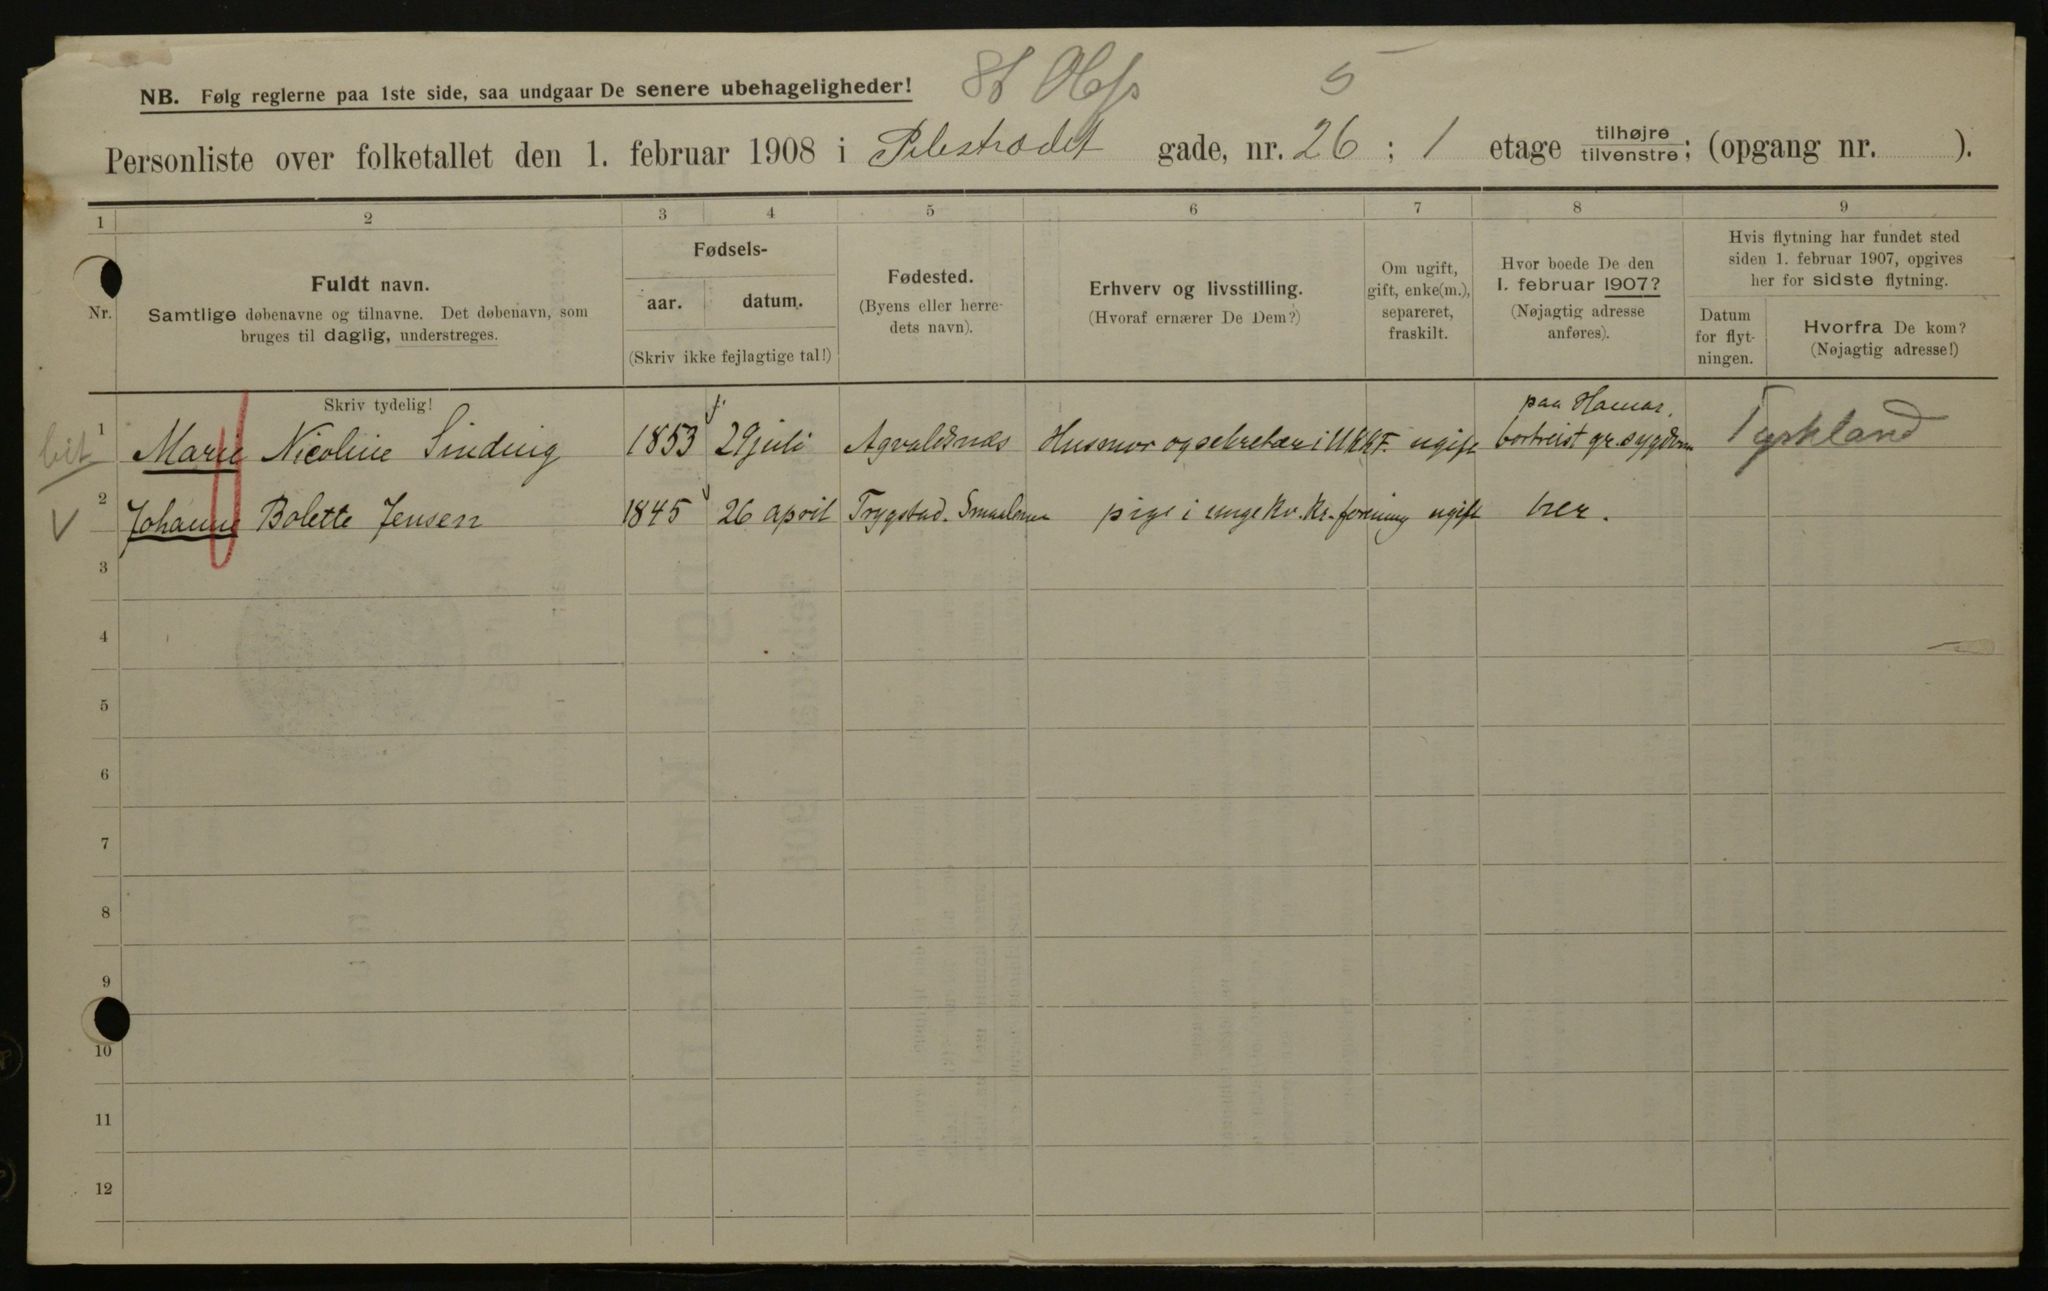 St Olafs 5
NB. Følg reglerne paa 1ste side, saa undgaar De senere ubehageligheder!
Personliste over folketallet den 1. februar 1908 i Pilestrædet gade, nr. 26 ; 1 etage tilhøjre tilvenstre; (opgang nr. ).
1 2 3 4 5 6 7 8 9
Nr.
Fuldt navn.
Samtlige døbenavne og tilnavne. Det døbenavn, som
bruges til daglig, understreges.
Fødsels-
aar. datum.
(Skriv ikke fejlagtige tal!)
Fødested.
(Byens eller herre-
dets navn).
Erhverv og livsstilling.
(Hvoraf ernærer De Dem?)
Om ugift,
gift, enke(m.),
separeret,
fraskilt.
Hvor boede De den
1. februar 1907?
(Nøjagtig adresse
anføres).
Hvis flytning har fundet sted
siden 1. februar 1907, opgives
her for sidste flytning.
Datum
for flyt-
ningen.
Hvorfra De kom?
(Nøjagtig adresse!)
Skriv tydelig!
paa Hamar.
1 Marie Nicoline Sinding 1853 29 juli Agvaldsnæs Husmor og sekretær i U.K.K.F. ugift bortreist gr. sygdom Tyskland
2 Johanne Bolette Jensen 1845 26 april Trygstad. Smaalenene pige i unge Kv. Kr. forening ugift her.
3
4
5
6
7
8
9
10
11
12